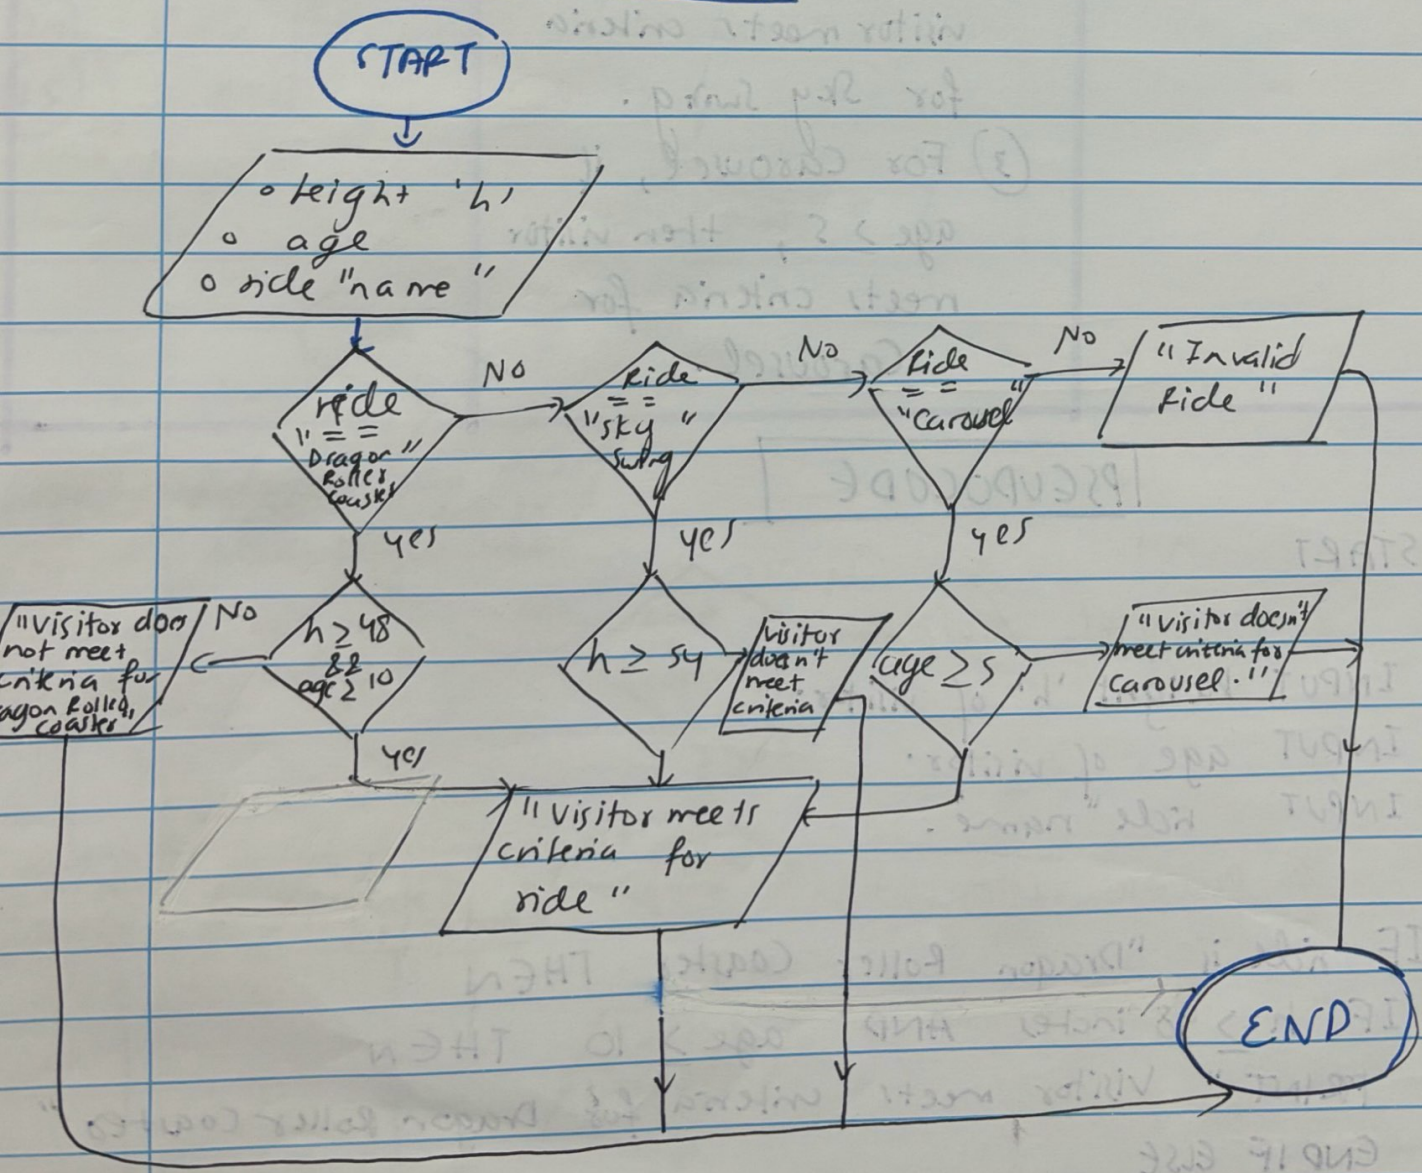 START
height 'h'
age
ride "name"
ride
==
"Dragon"
Roller
Coaster
No
Ride
==
"Sky"
Swing
No
Ride
==
"Carousel"
No
"Invalid
Ride"
yes
yes
yes
"Visitor does
not meet
criteria for
agon Roller
coaster"
No
h ≥ 48
&&
age ≥ 10
h ≥ 54
visitor
doesn't
meet
criteria
age ≥ 5
"Visitor doesn't
meet criteria for
carousel."
yes
"Visitor meets
criteria for
ride"
END